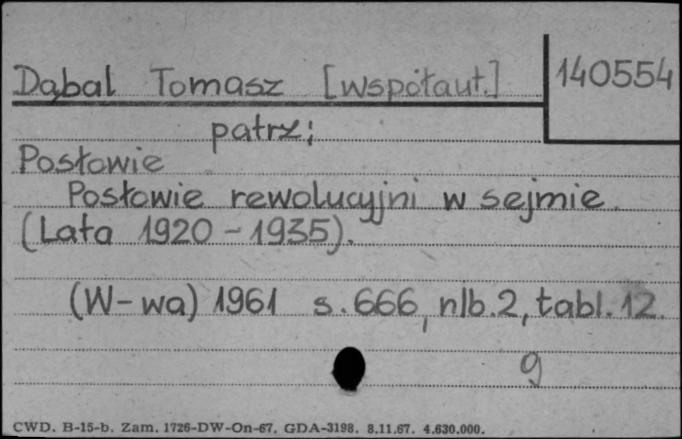 Dąbal Tomasz [współaut.]
140554
patrz:
Posłowie
Posłowie rewolucyjni w sejmie.
(Lata 1920-1935).
(W-wa) 1961 s. 666, nlb. 2, tabl. 12.
9
CWD. B-15-b. Zam. 1726-DW-On-67. GDA-3198. 8.11.67. 4.630.000.